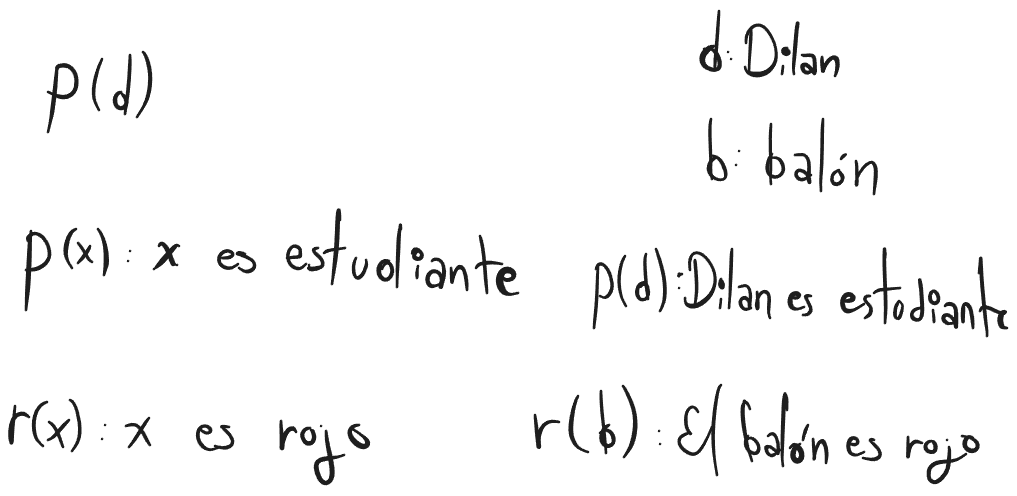 p(d)
d: Dilan
b: balón
p(x): x es estudiante
p(d): Dilan es estodiante
r(x): x es rojo
r(b): El balón es rojo